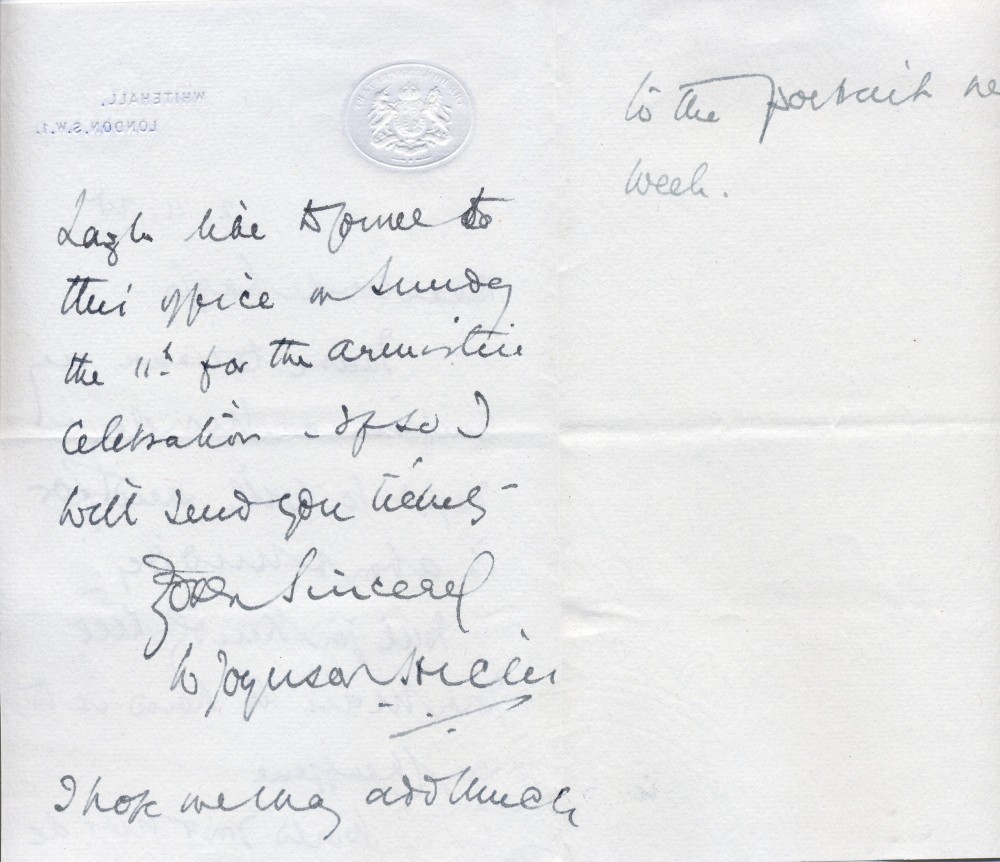 WHITEHALL,
LONDON. S.W.1.
like to come to
this office on Sunday
the 11th for the armistice
Celebration - If so I
will send you tickets -
Yours Sincerely
W Joynson Hicks
I hope we may add much
to the portrait ne
week.